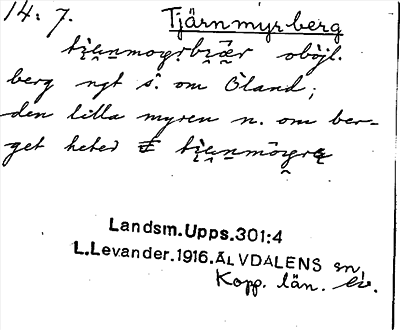 14: 7.
Tjärnmyrberg
obòjl.
berg ngt s. om Öland;
den lilla myren n. om ber-
get heter
Landsm.Upps.301:4
L.Levander.1916.ÄLVDALENS sn,
Kopp. län.